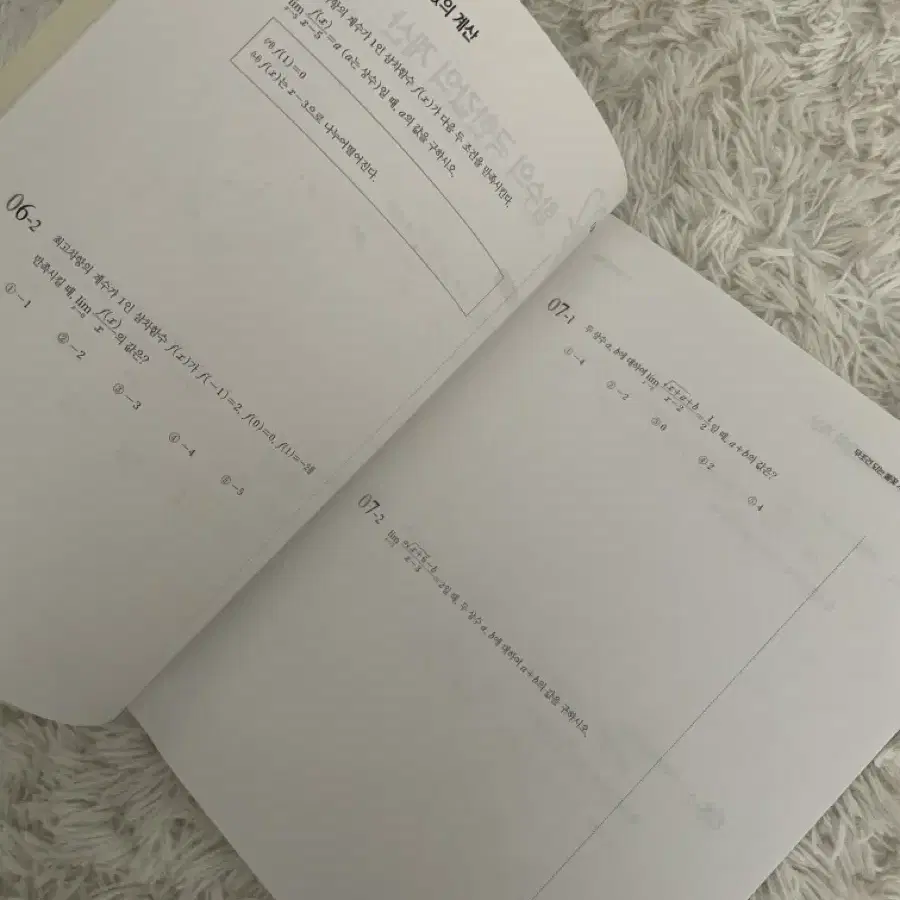 의 계산
항의 계수가 1인 삼차함수 f(x)가 다음 두 조건을 만족시킨다.
lim f(x)/(x-5)=a (a는 상수)일 때, a의 값을 구하시오.
(가) f(1)=0
(나) f(x)는 x-3으로 나누어떨어진다.
06-2
최고차항의 계수가 1인 삼차함수 f(x)가 f(-1)=2, f(0)=0, f(1)=-2를
만족시킬 때, lim f(x)/x의 값은?
① -1
② -2
③ -3
④ -4
⑤ -5
07-1
두 상수 a, b에 대하여 lim (√(x+a)+b)/(x-2)=1/2일 때, a+b의 값은?
① -4
② -2
③ 0
④ 2
⑤ 4
07-2
=2일 때, 두 상수 a, b에 대하여 a+b의 값을 구하시오.